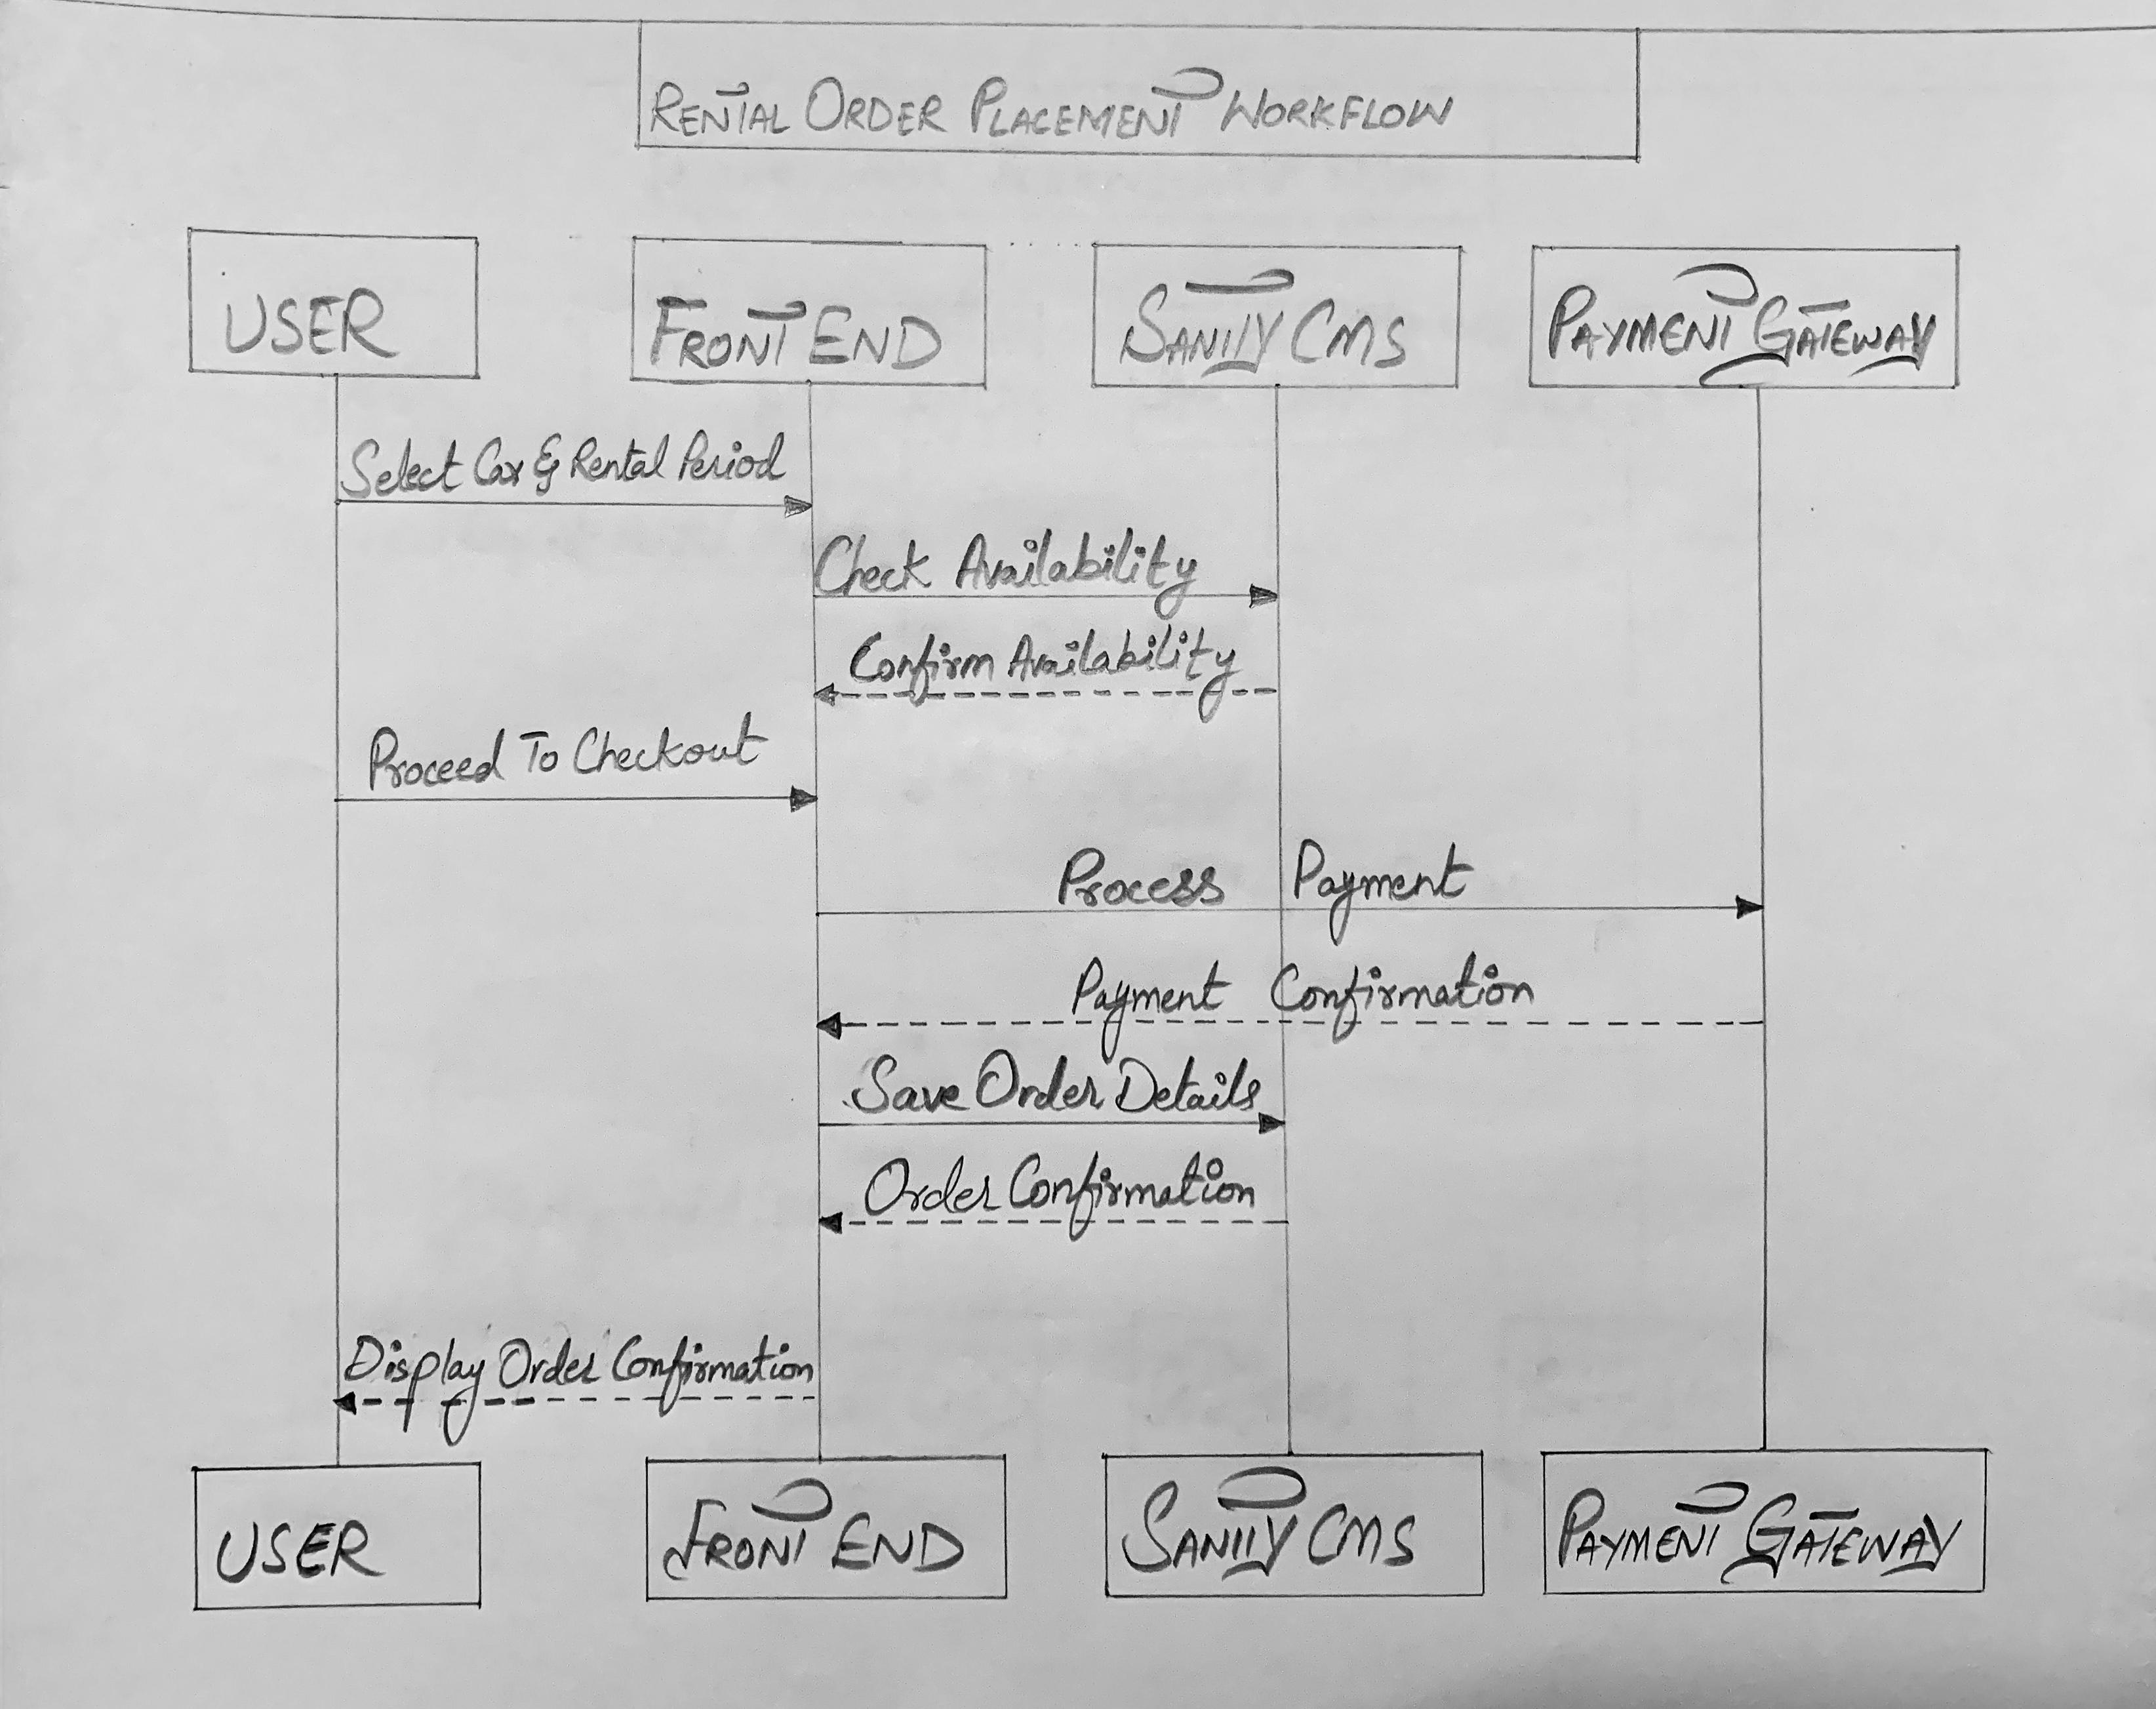 RENTAL ORDER PLACEMENT WORKFLOW
USER
FRONT END
SANITY CMS
PAYMENT GATEWAY
Select Car & Rental Period
Check Availability
Confirm Availability
Proceed To Checkout
Process Payment
Payment Confirmation
Save Order Details
Order Confirmation
Display Order Confirmation
USER
FRONT END
SANITY CMS
PAYMENT GATEWAY